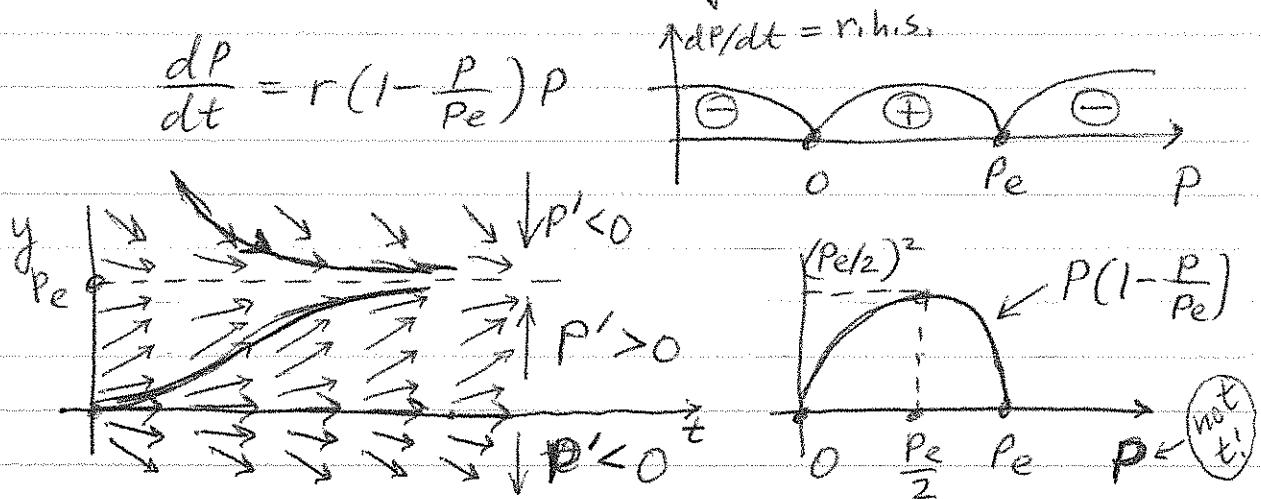 dP/dt = r.h.s.
dP/dt = r(1 - P/Pe)P
⊖ ⊕ ⊖
0 Pe P
y
Pe
P' < 0
P' > 0
t
P' < 0
(Pe/2)²
P(1 - P/Pe)
0 Pe/2 Pe P ← not t!